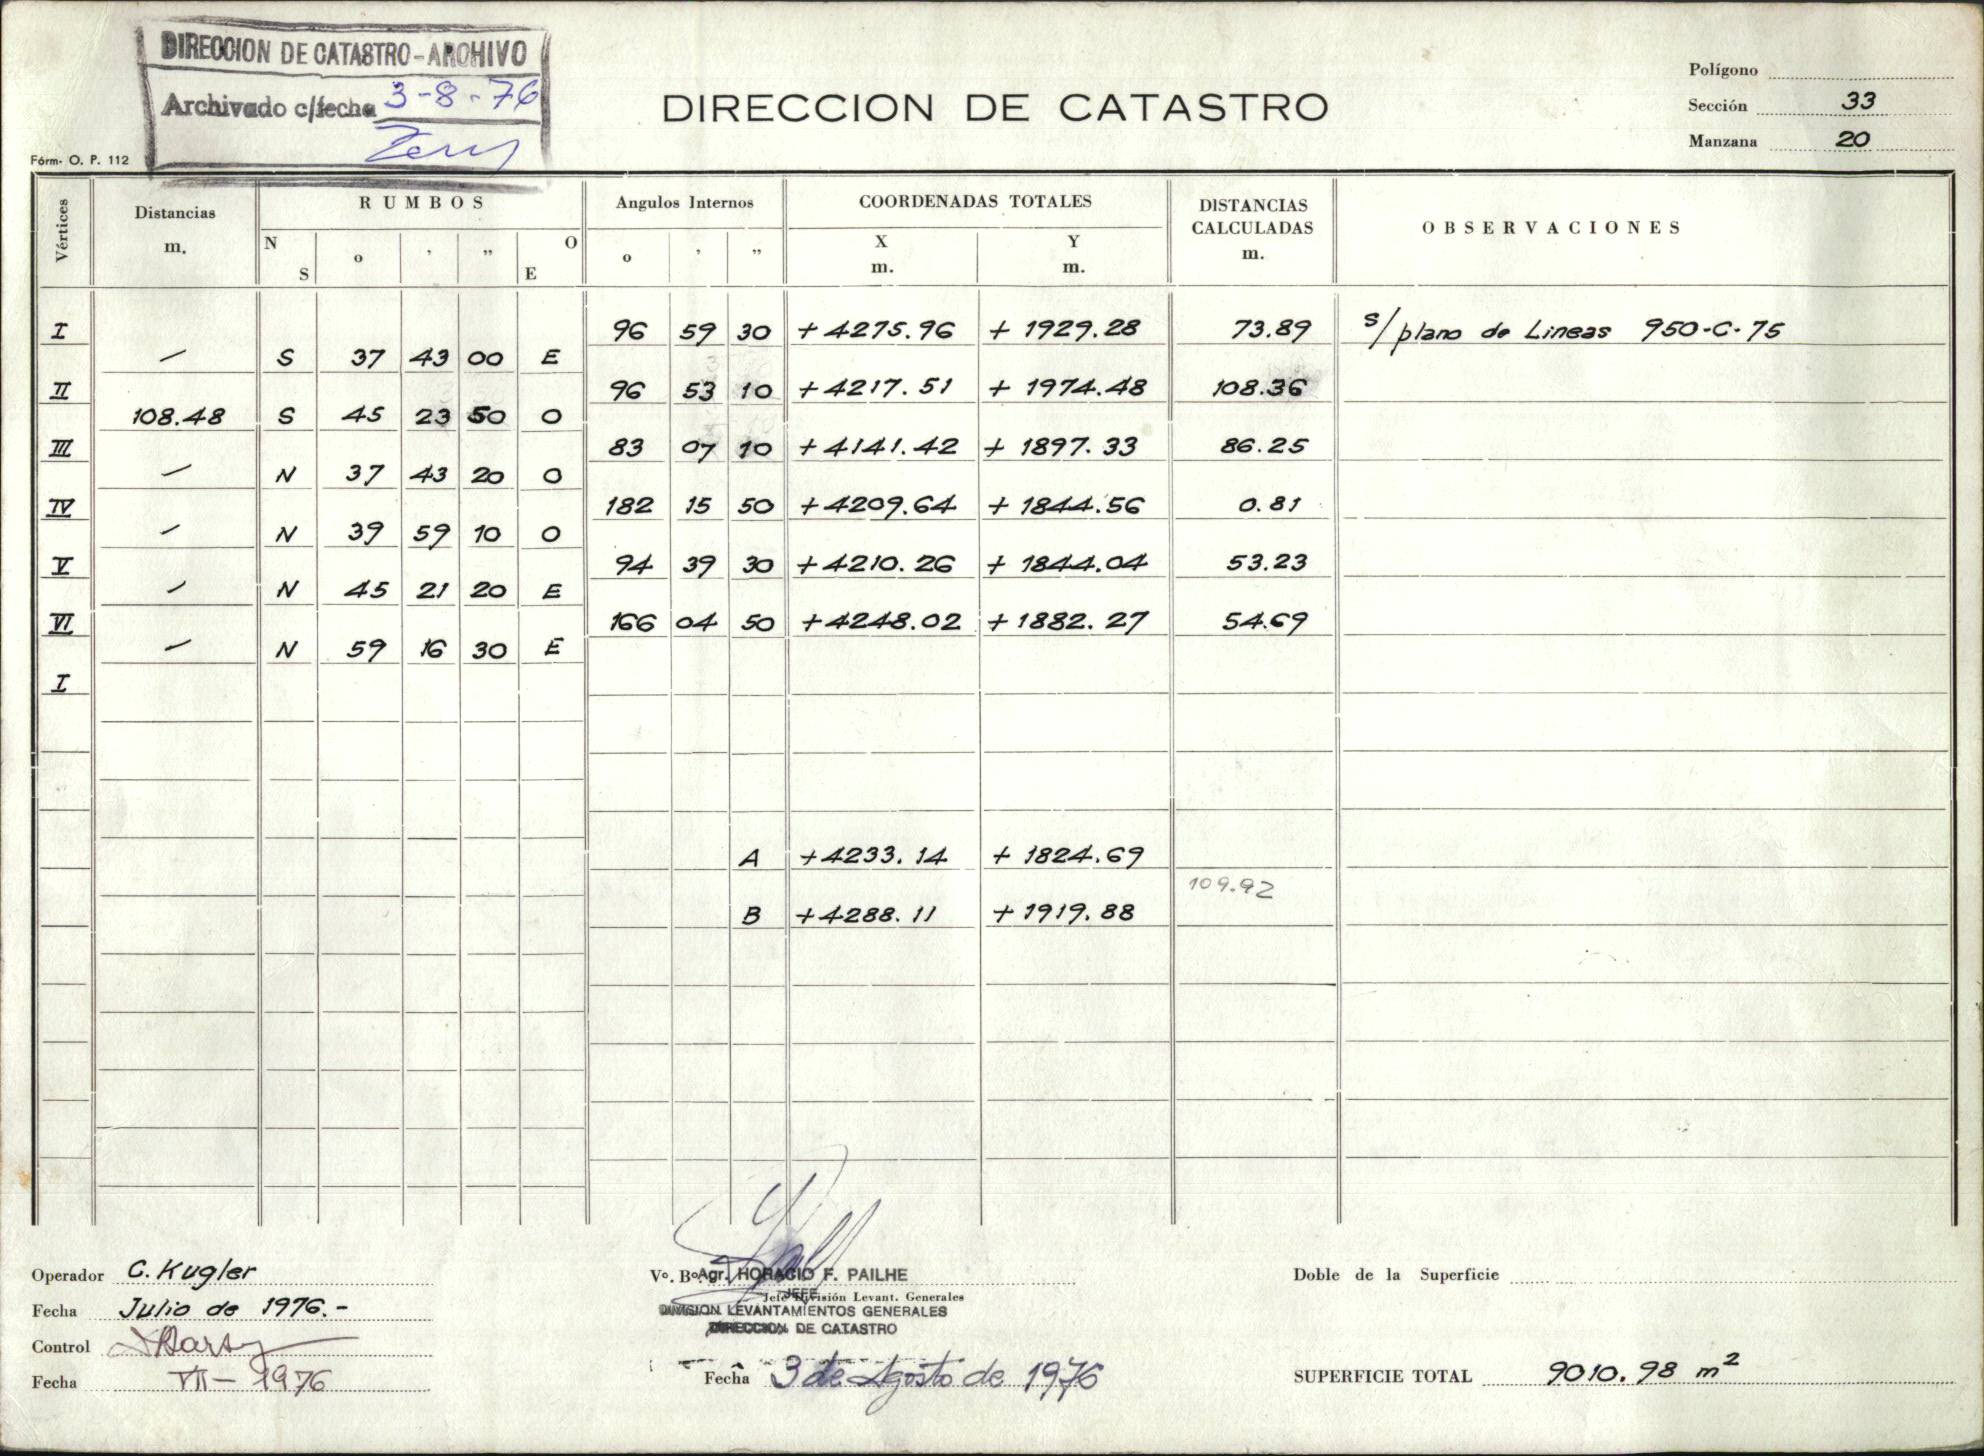 DIRECCION DE CATASTRO-ARCHIVO
Archivado c/fecha 3-8-76
Fórm. O. P. 112
DIRECCION DE CATASTRO
Polígono
Sección 33
Manzana 20
Vértices Distancias m. RUMBOS N S o ' " O E Angulos Internos o ' " COORDENADAS TOTALES X m. Y m. DISTANCIAS CALCULADAS m. OBSERVACIONES
I 96 59 30 + 4275.96 + 1929.28 73.89 s/plano de Lineas 950-C-75
— S 37 43 00 E
II 96 53 10 + 4217.51 + 1974.48 108.36
108.48 S 45 23 50 O
III 83 07 10 + 4141.42 + 1897.33 86.25
— N 37 43 20 O
IV 182 15 50 + 4209.64 + 1844.56 0.81
— N 39 59 10 O
V 94 39 30 + 4210.26 + 1844.04 53.23
— N 45 21 20 E
VI 166 04 50 + 4248.02 + 1882.27 54.69
— N 59 16 30 E
I
A + 4233.14 + 1824.69
109.92
B + 4288.11 + 1919.88
Operador C. Kugler
Fecha Julio de 1976.-
Control
Fecha VII - 1976
Vo. Bo. Agr. HORACIO F. PAILHE
JEFE
Jefe División Levant. Generales
DIVISION LEVANTAMIENTOS GENERALES
DIRECCION DE CATASTRO
Fecha 3 de Agosto de 1976
Doble de la Superficie
SUPERFICIE TOTAL 9010.98 m²